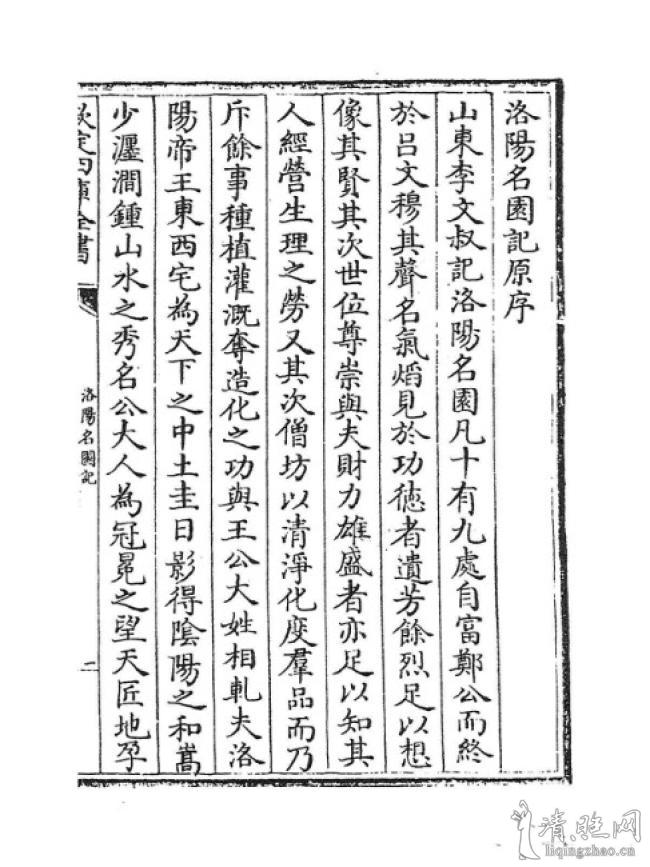 洛陽名園記原序
山東李文叔記洛陽名園凡十有九處自富鄭公而終
於呂文穆其聲名氣熖見於功徳者遺芳餘烈足以想
像其賢其次世位尊崇與夫財力雄盛者亦足以知其
人經營生理之勞又其次僧坊以清淨化度羣品而乃
斥餘事種植灌溉奪造化之功與王公大姓相軋夫洛
陽帝王東西宅為天下之中土圭日影得陰陽之和嵩
少瀍澗鍾山水之秀名公大人為冠冕之望天匠地孕
欽定四庫全書
洛陽名園記
二
清照网
liqingzhao.cn